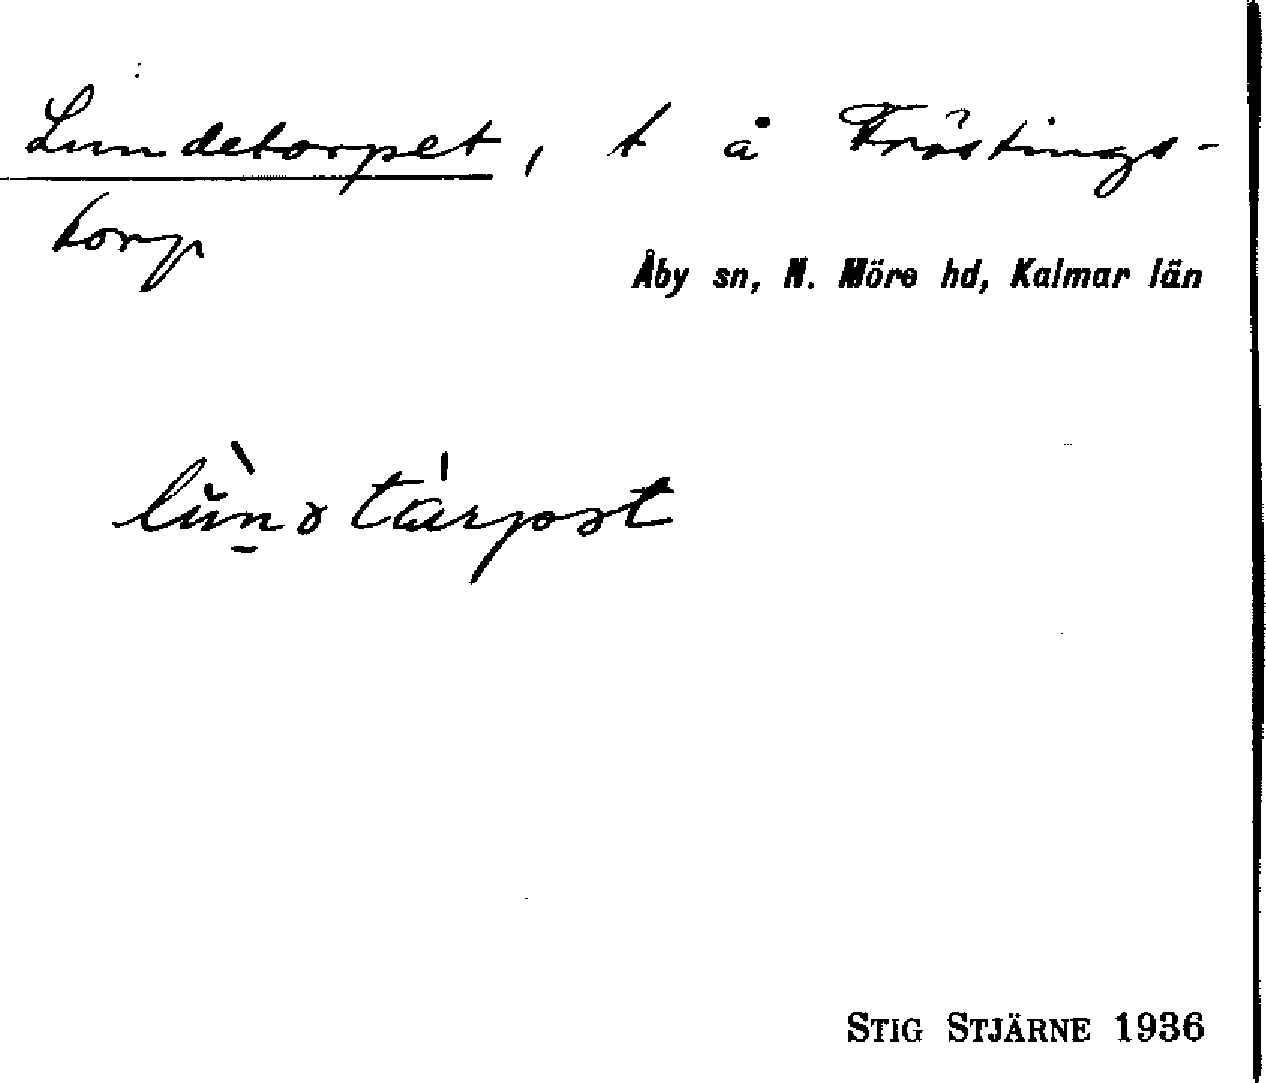 Lundetorpet, t å Tröstings-
torp
Åby sn, N. Möre hd, Kalmar län
STIG STJÄRNE 1936